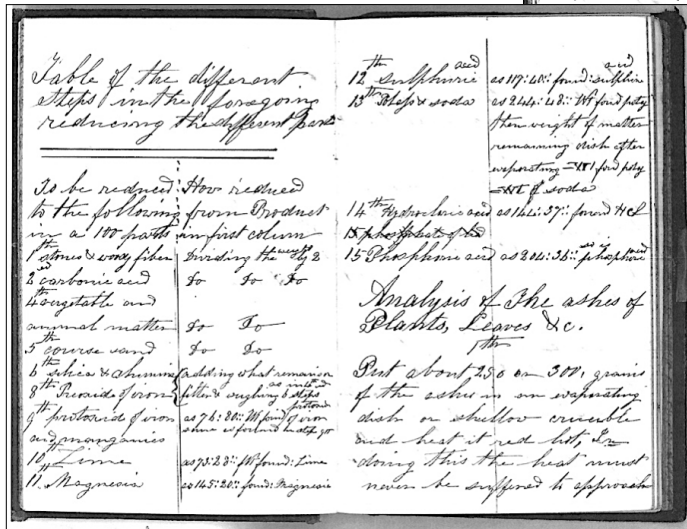 Table of the different
steps in the foregoing
reducing the different parts
To be reduced How reduced
to the following from Product
in a 100 parts in first column
1st stones & woody fiber Dividing the weight by 2
2nd carbonic acid Do Do Do
4th vegetable and
animal matter Do Do
5th course sand Do Do
6th silica & alumina adding what remains on
8th Peroxide of iron filter & weighing as in steps
9th protoxid of iron as 76:80:: Wt found of iron
and manganies same is formed in step
10 Lime as 73:28:: Wt found: Lime
11. Magnesia as 145:20:: found: Magnesia
12th sulphuric acid as 117:40:: found: sulphuric acid
13th Potass & soda as 244:48:: Wt found
then weight of matter
remaining dish after
evaporating = Wt found
= Wt of soda
14th Hydrocloric acid as 144:37:: found HCl
15 phosphate of
15 Phosphoric acid as 204:36:: phosphoric acid
Analysis of The ashes of
Plants, Leaves &c.
1th
Put about 250 or 300, grains
of the ashes in an evaporating
dish or shallow crucible
and heat it red hot, In
doing this the heat must
never be suffered to approach